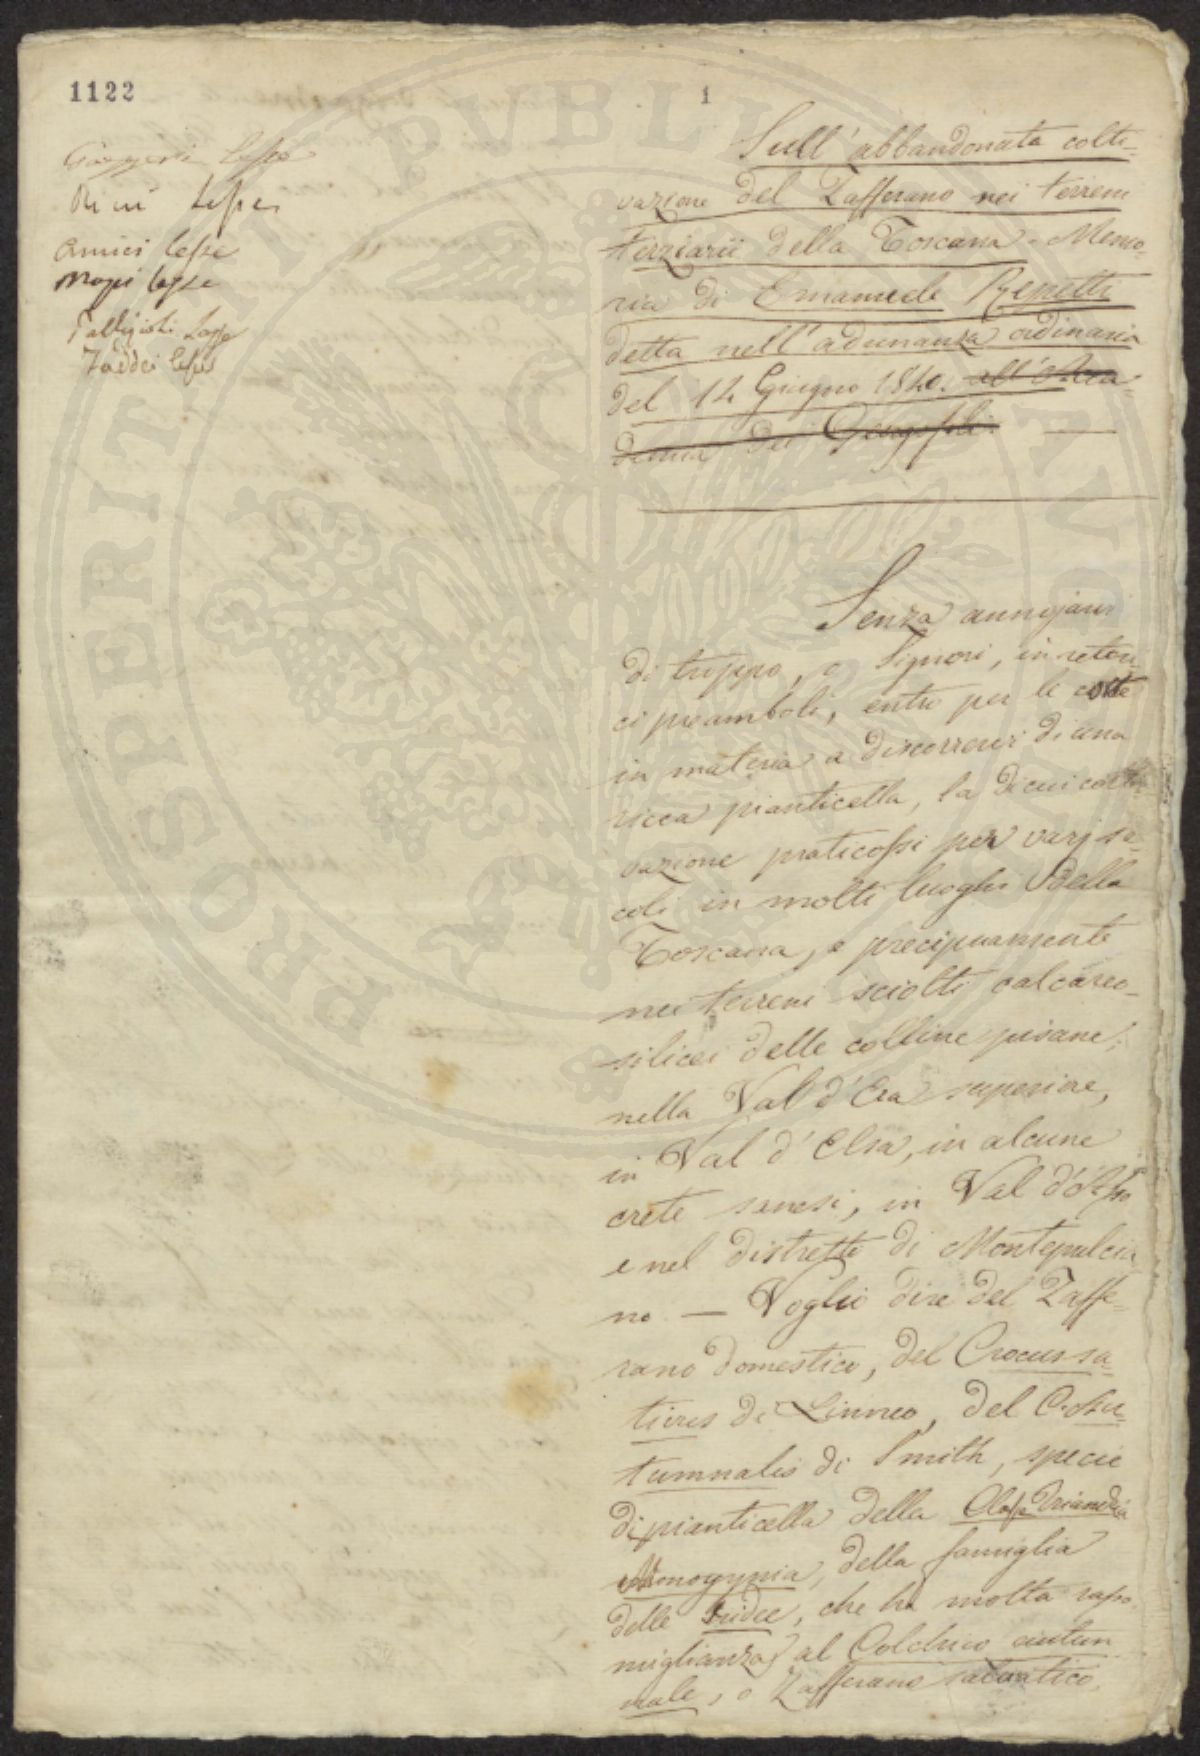 1122
1
Gazzeri lesse
Ridolfi lesse
Amici lesse
lesse
lesse
Taddei lesse
Sull'abbandonata colti=
vazione del Zafferano nei terreni
terziarii della Toscana - Memo=
ria di Emanuele Repetti
detta nell'adunanza ordinaria
del 14 Giugno 1840. all'Acca=
demia dei Georgofili.
Senza annojarvi
di troppo, o Signori, in retori=
ci preamboli, entro per le corte
in materia a discorrervi di una
ricca pianticella, la di cui colti=
vazione praticossi per varj se=
coli in molti luoghi della
Toscana, e precipuamente
nei terreni sciolti calcareo-
silicei delle colline pisane;
nella Val d'Era superiore,
in Val d'Elsa, in alcune
crete sanesi, in Val d'Asso
e nel distretto di Montepulcia
no — Voglio dire del Zaffe=
rano domestico, del Crocus sa=
tivus di Linneo, del C. Au=
tumnalis di Smith, specie
di pianticella della Classe Triandria
Monogynia, della famiglia
delle Iridee, che ha molta rasso
miglianza al Colchico autun
nale, o Zafferano salvatico,
PROSPERITATI PVBLICAE AVGENDAE